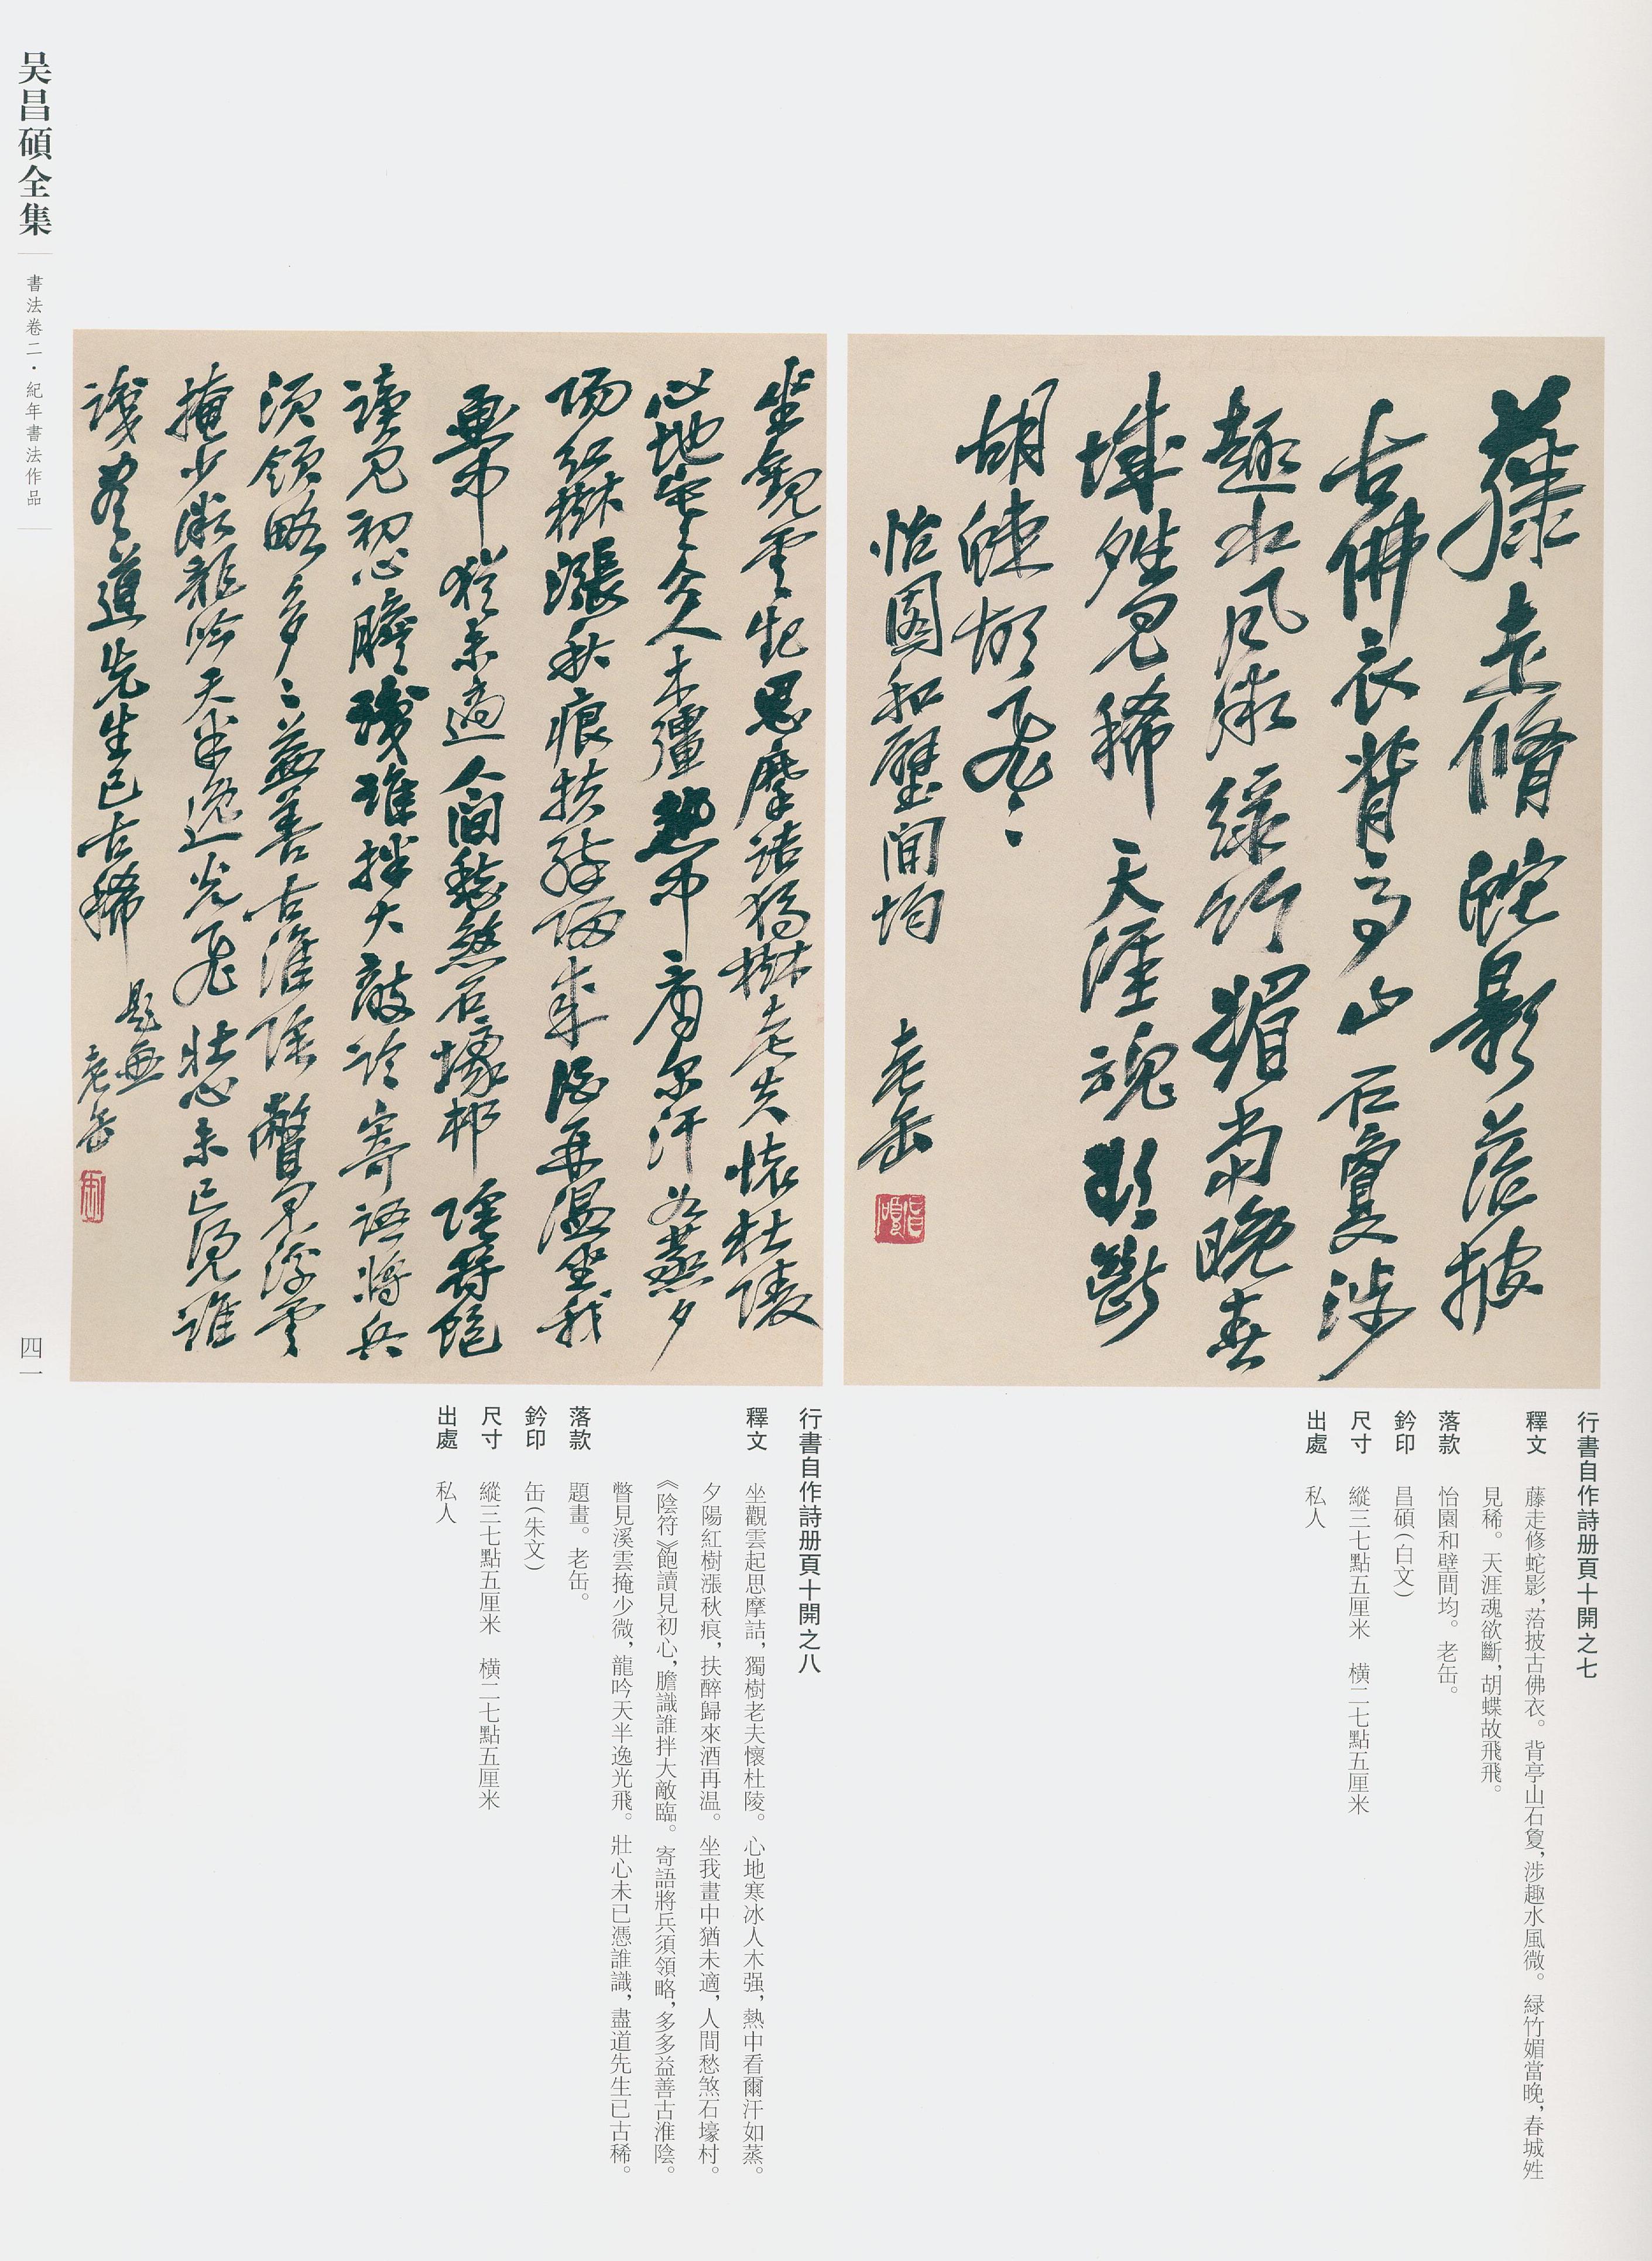 藤走脩蛇影菭披
古佛衣背亭山石敻涉
趣水風微緑竹媚當晚春
城殅見稀天涯魂欲斷
胡蝶故飛〻
怡園和壁間均
老缶
昌碩
行書自作詩册頁十開之七
釋文 藤走修蛇影，菭披古佛衣。背亭山石敻，涉趣水風微。緑竹媚當晚，春城殅
見稀。天涯魂欲斷，胡蝶故飛飛。
落款 怡園和壁間均。老缶。
鈐印 昌碩（白文）
尺寸 縱三七點五厘米 橫二七點五厘米
出處 私人
坐觀雲起思摩詰獨樹老夫懷杜陵
心地寒冰人木彊熱中看爾汗如蒸夕
陽紅樹漲秋痕扶醉歸來酒再温坐我
畫中猶未適人間愁煞石壕邨陰符飽
讀見初心膽識誰拌大敵臨寄語將兵
須領略多〻益善古淮陰瞥見溪雲
掩少微龍吟天半逸光飛壯心未已憑誰
識盡道先生已古稀
題畫
老缶
缶
行書自作詩册頁十開之八
釋文 坐觀雲起思摩詰，獨樹老夫懷杜陵。心地寒冰人木强，熱中看爾汗如蒸。
夕陽紅樹漲秋痕，扶醉歸來酒再温。坐我畫中猶未適，人間愁煞石壕村。
《陰符》飽讀見初心，膽識誰拌大敵臨。寄語將兵須領略，多多益善古淮陰。
瞥見溪雲掩少微，龍吟天半逸光飛。壯心未已憑誰識，盡道先生已古稀。
落款 題畫。老缶。
鈐印 缶（朱文）
尺寸 縱三七點五厘米 橫二七點五厘米
出處 私人
吴昌碩全集
書法卷二·紀年書法作品
四一